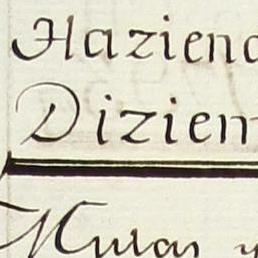 Hazienc
Diziem
Mulas y